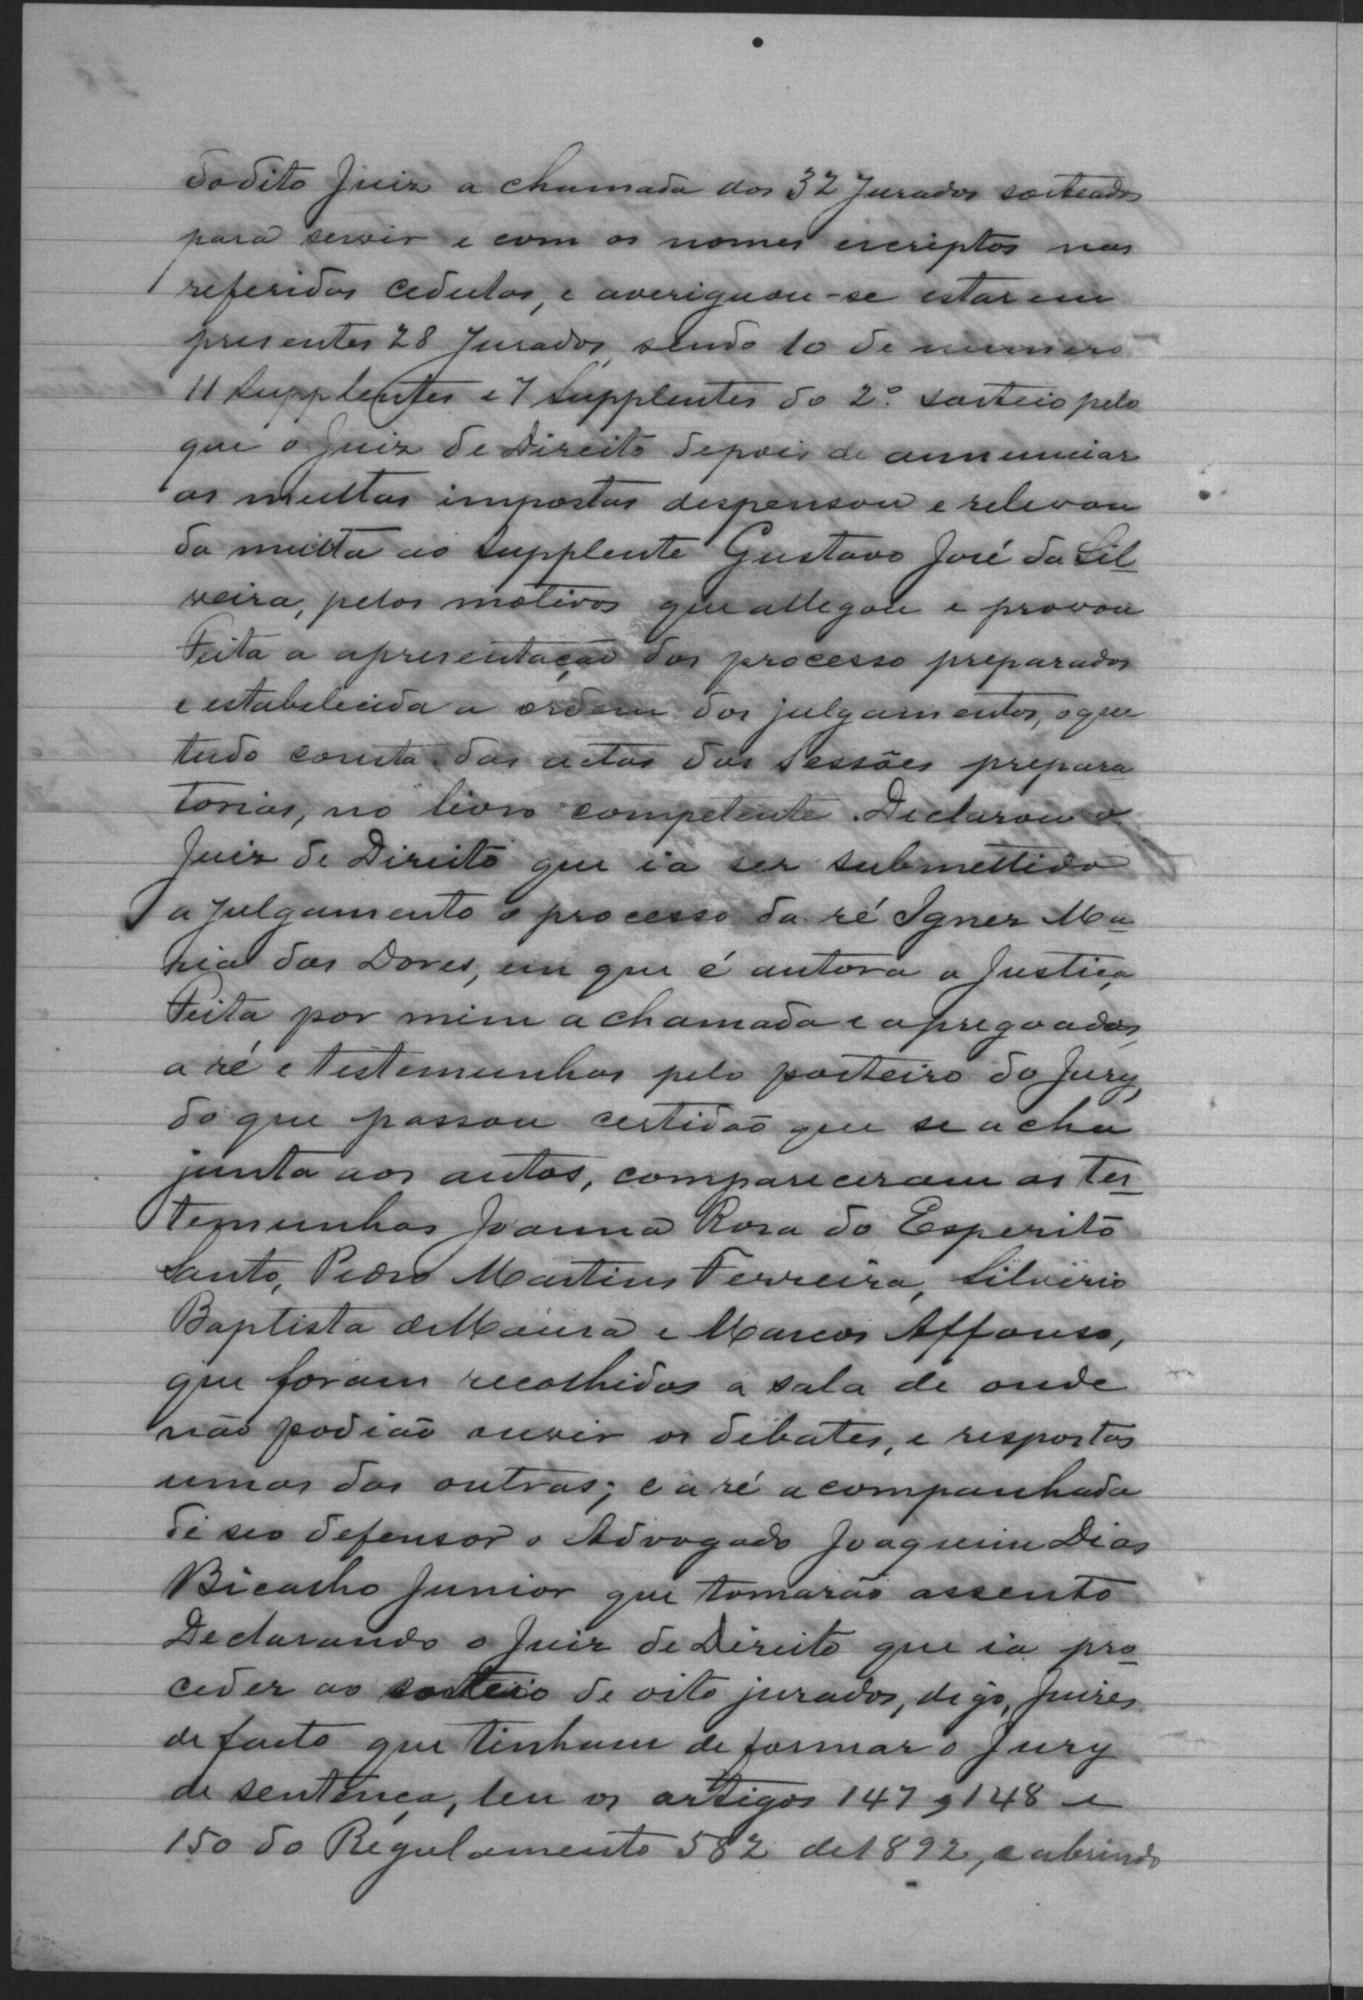 do dito Juiz a chamada dos 32 Jurados sorteados
para servir e com os nomes escriptos nas
referidas cedulas, e averiguou-se estarem
presentes 28 Jurados, sendo 10 de numero
11 Supplentes e 7 Supplentes do 2º sorteio pelo
que o Juiz de Direito depois de annunciar
as multas impostas despensou e relevou
da multa ao Supplente Gustavo José da Sil-
veira, pelos motivos que allegou e provou
Feita a apresentação dos processo preparados
e estabelecida a ordem dos julgamentos, o que
tudo consta das actas das Sessões prepara
torias, no livro competente. Declarou o
Juiz de Direito que ia ser submettido
a julgamento o processo da ré Ignez Ma-
ria das Dores, em que é autora a Justiça
Feita por mim a chamada e apregoados,
a ré e testemunhas pelo porteiro do Jury,
do que passou certidão que se acha
junta aos autos, compareceram as tes-
temunhas Joanna Rosa do Esperito
Santo, Pedro Martins Ferreira, Silverio
Baptista de Moura e Marcos Affonso,
que foram recolhidas a sala de onde
não podião ouvir os debates, e respostas
umas das outras; e a ré acompanhada
de seo defensor o Advogado Joaquim Dias
Bicalho Junior que tomarão assento
Declarando o Juiz de Direito que ia pro-
ceder ao sorteio de oito jurados, digo, Juizes
de facto que tinham de formar o Jury
de sentença, leu os artigos 147, 148 e
150 do Regulamento 582 de 1892, e abrindo